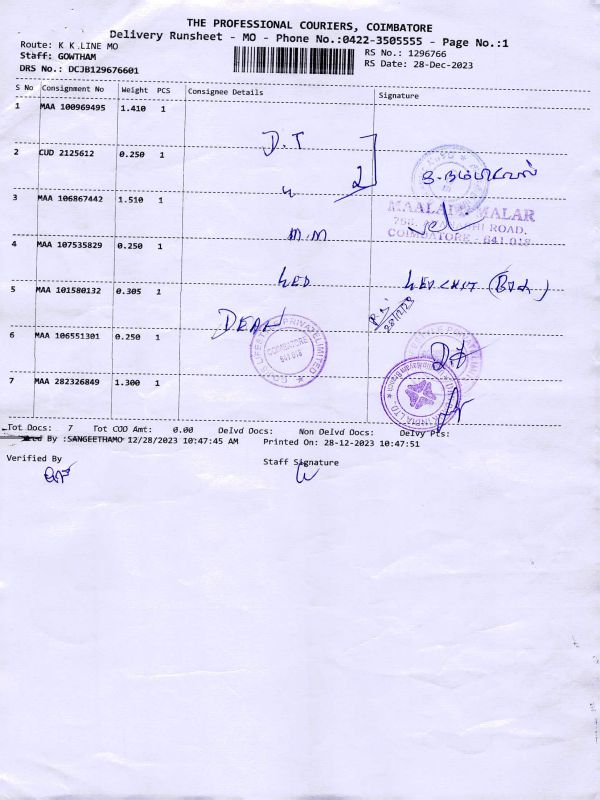 THE PROFESSIONAL COURIERS, COIMBATORE
Delivery Runsheet - MO - Phone No.:0422-3505555 - Page No.:1
Route: K K.LINE MO
RS No.: 1296766
Staff: GOWTHAM
RS Date: 28-Dec-2023
DRS No.: DCJB129676601
S No Consignment No Weight PCS Consignee Details Signature
1 MAA 100969495 1.410 1
D.T
2 CUD 2125612 0.250 1
2
3 MAA 106867442 1.510 1
MAALAI MALAR
ROAD,
COIMBATORE - 641 018
M.M
4 MAA 107535829 0.250 1
5 MAA 101580132 0.305 1
28/12/23
PRIVATE LIMITED
COIMBATORE
641 018
6 MAA 106551301 0.250 1
7 MAA 282326849 1.300 1
Tot Docs: 7 Tot COD Amt: 0.00 Delvd Docs: Non Delvd Docs: Delvy Pts:
By :SANGEETHAMO 12/28/2023 10:47:45 AM Printed On: 28-12-2023 10:47:51
Verified By
Staff Signature